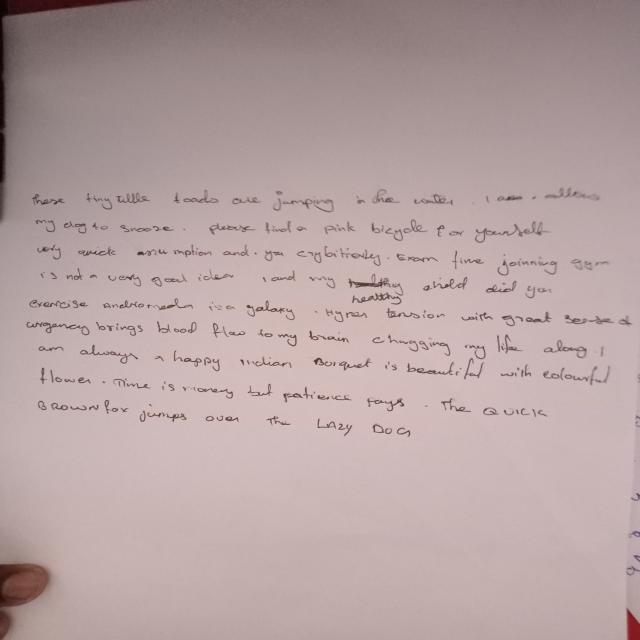 These tiny little toads are jumping in the water. I allows
my dog to snooze. please find a pink bicycle for yourself
very quick assumption and. you Exam time joinning gym
is not a very good idea. I and my healthy child did you
exercise Andromeda is a galaxy. Hyper tension with great sense of
urgency brings blood flow to my brain chugging my life along. I
am always a happy indian Boquet is beautiful with colourful
flower. Time is money but patience pays. The QUICK
BROWN fox jumps over The LAZY DOG